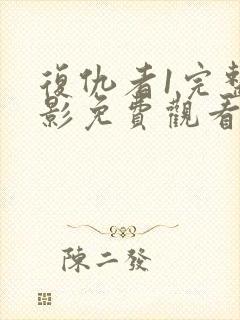 復仇者1完整
影免費觀看
陳二發